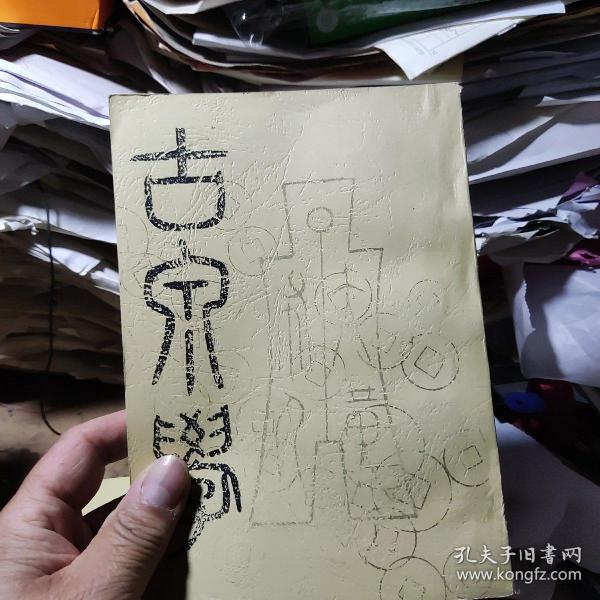 古泉學
孔夫子旧書网
www.kongfz.com